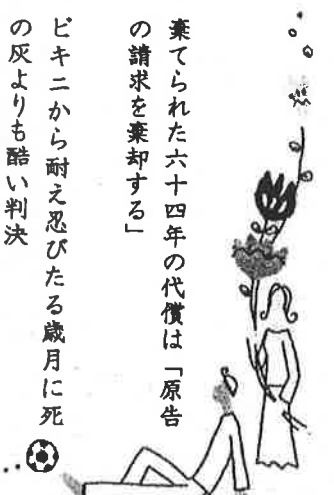 棄てられた六十四年の代償は「原告
の請求を棄却する」
ビキニから耐え忍びたる歳月に死
の灰よりも酷い判決